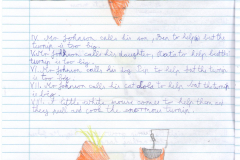 IV. Mr Johnson calls his son, Ben to help but the
turnip is too big.
V. Mr Johnson calls his daughter, to help but the
turnip is too big.
VI. Mr Johnson calls his big to help but the turnip
is too big.
VII. Mr Johnson calls his cat to help but the turnip
is too big.
VIII. A little white mouse comes to help them as
they pull and the turnip.